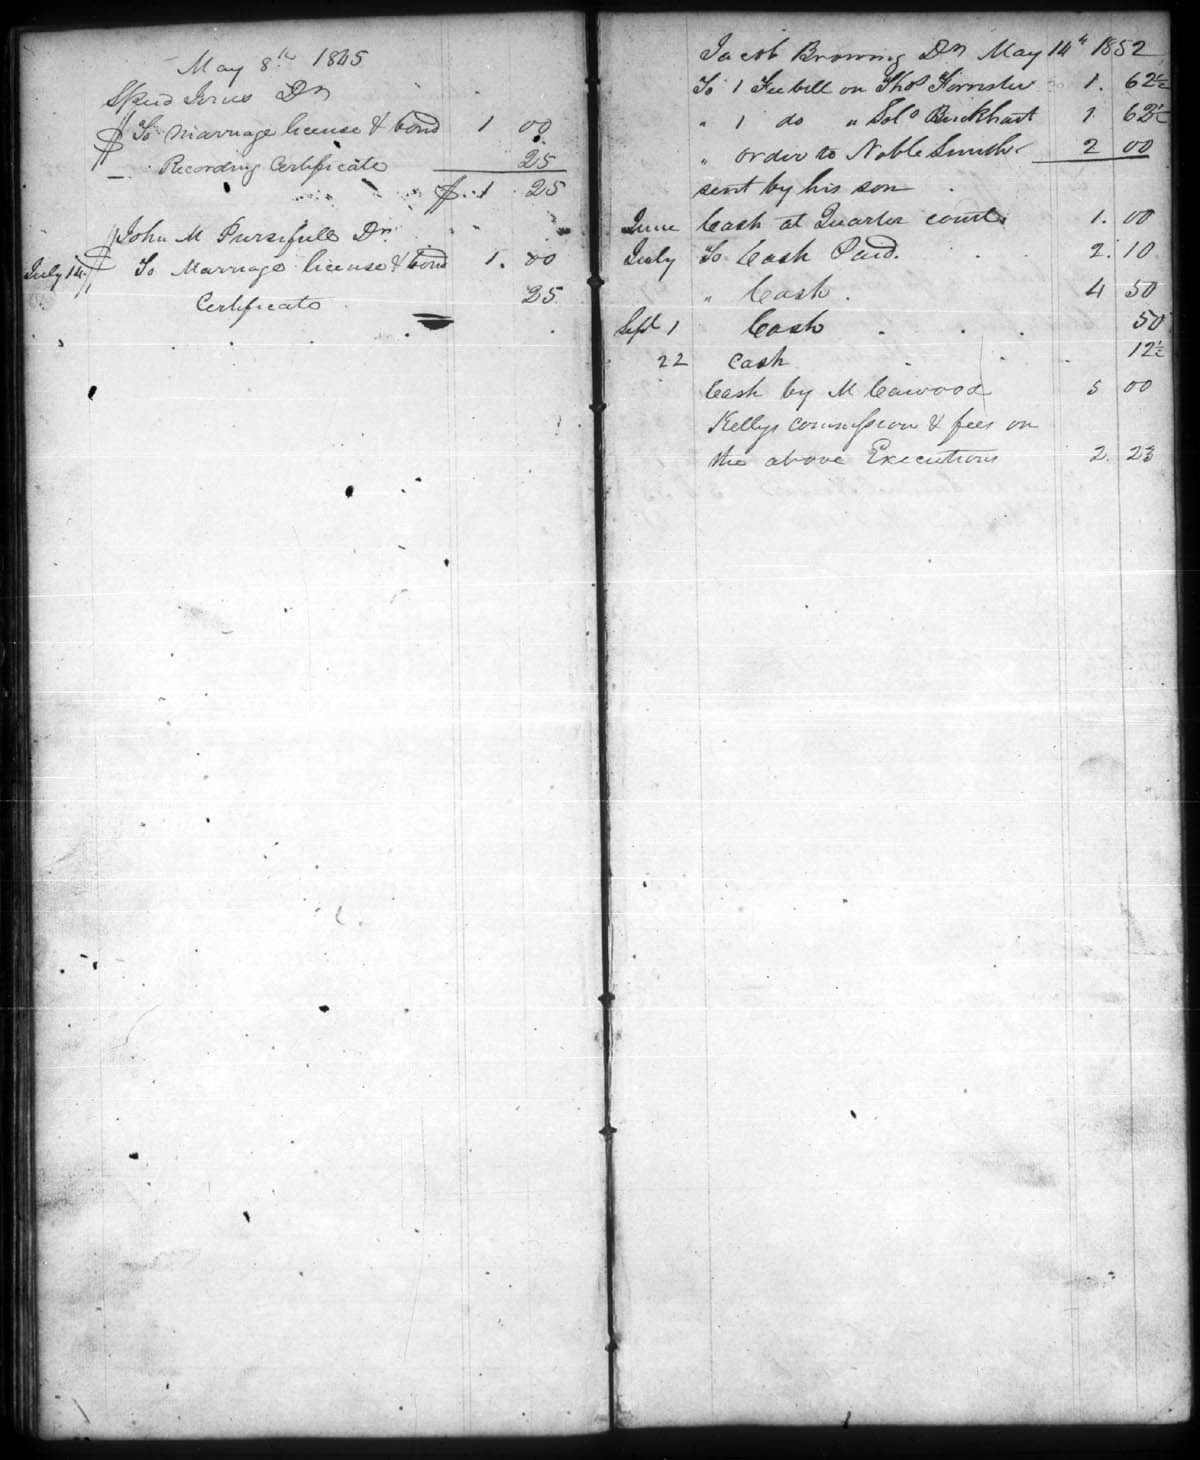 May 8th 1845
Speed Dr
To Marriage license & bond 1 00
Recording Certificate 25
$ .1 25
John M Pursifull Dr
July 14 To Marriage license & bond 1. 00
Certificate 25
Jacob Browning Dr May 14th 1852
To 1 Fee bill on Thos Forrester 1. 62½
" 1 do " Solo Buckhart 1 62½
" order to Noble Smith 2 00
sent by his son
June Cash at Quarter court 1. 00
July To Cash Paid. 2. 10
" Cash 4 50
Sept 1 Cash 50
22 Cash 12½
Cash by M Cawood 5 00
Kellys commission & fees on
the above Executions 2. 23